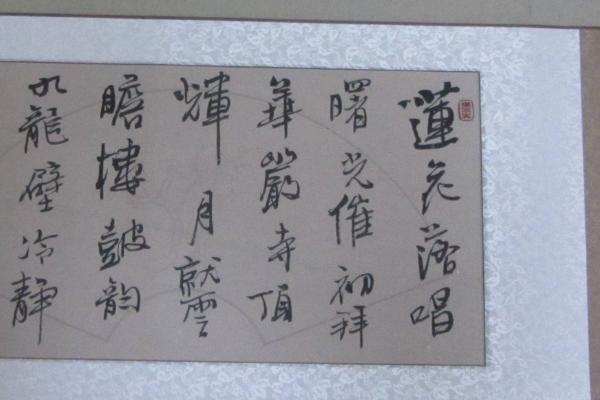 蓮花落唱
曙光催初拜
華嚴寺頂
輝月就雲
瞻樓鼓韵
九龍壁冷靜